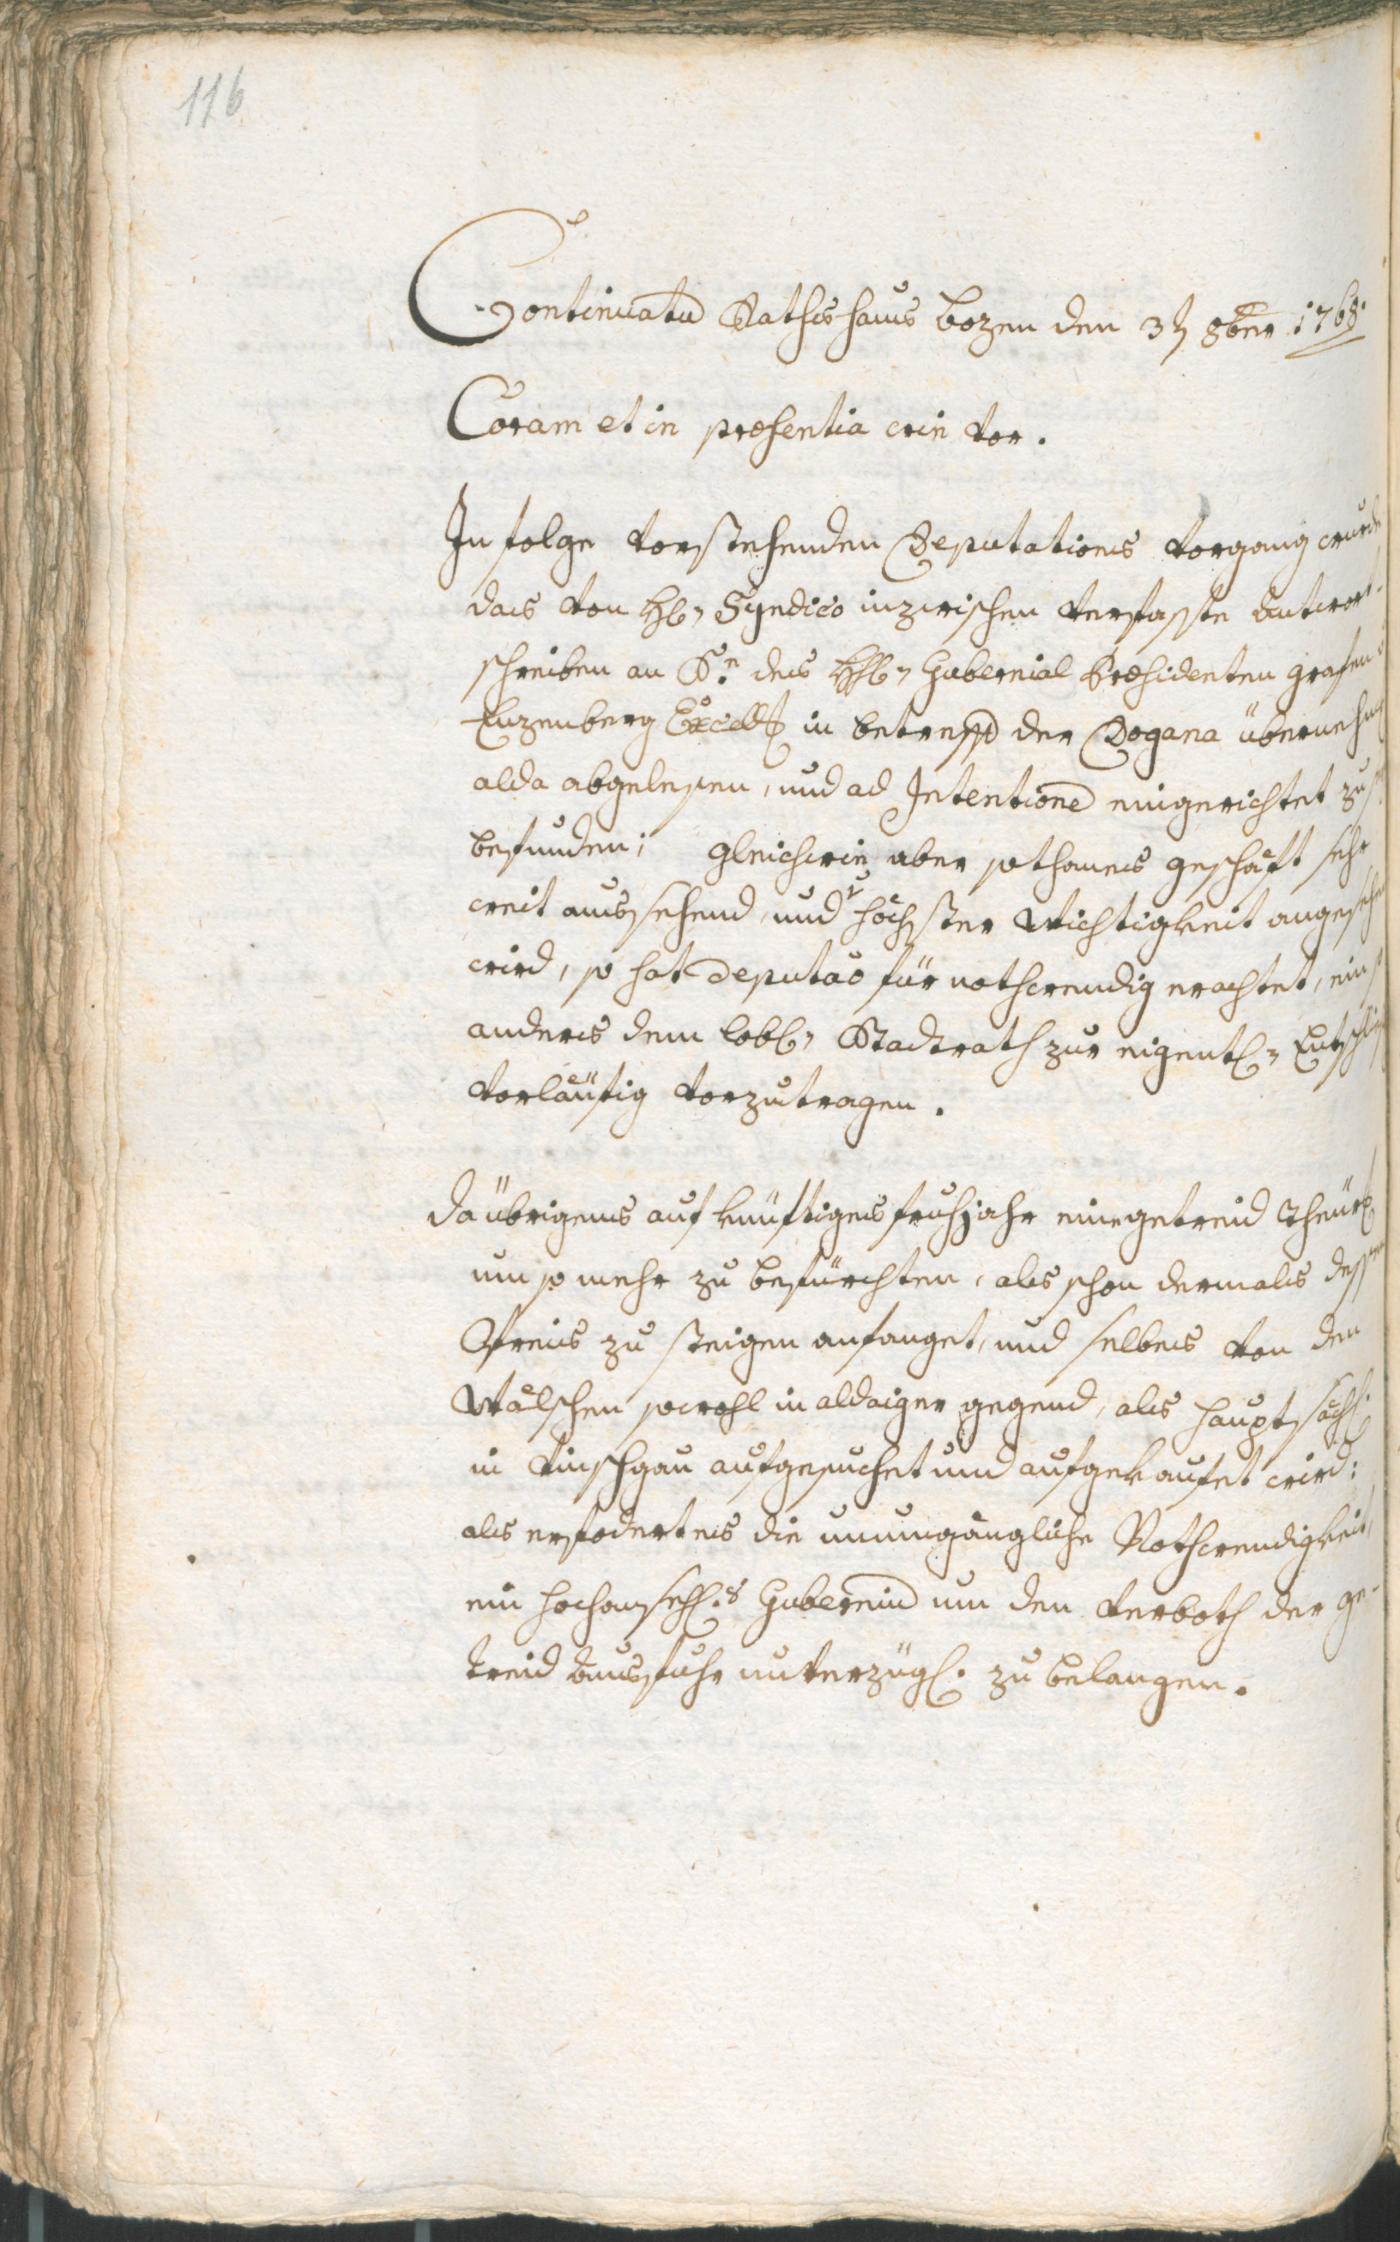 116
Continuatu Rathshaus bozen den 3ʒ 8ber 1768.
Coram et in præsentia wie vor.
In folge vorstehenden Deputations vorgang wurde
das von H: Syndico inzwischen verfasste Antwort-
schreiben an Sr. des H: Gubernial Præsidenten grafen v
Enzenberg Excell in betreff der Dogana übernehmg
alda abgelesen, und ad Intentione eingerichtet zu
befunden; gleichwie aber sothanes geschäft sehr
weit aussehend, und höchster Wichtigkeit angesehen
wird, so hat Deputao für nothwendig erachtet, ein
anders dem lobl: Stadtrath zur eigentl:
vorläufig vorzutragen.
da übrigens auf künftiges frühjahr eine getreid Theür
um so mehr zu befürchten, als schon dermals dessen
Preis zu steigen anfanget, und selbes von den
Wälschen sowohl in aldaiger gegend, als hauptsächl.
in Vinschgau aufgesuchet und aufgekaufet wird:
als erfodert es die unumgängliche Nothwendigkeit,
ein hochansehl.s Guberniu um den Verboth der ge-
treid Ausfuhr unverzügl. zu belangen.